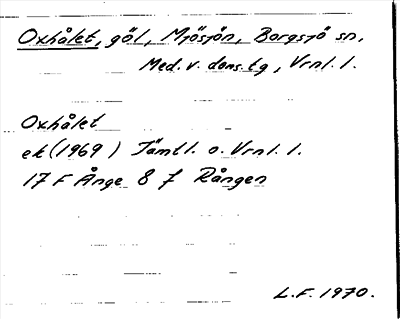 Oxhålet, göl, Mjösjön, Borgsjö sn,
Med.v. doms.tg, Vrnl. l.
Oxhålet
ek (1969) Jämtl. o. Vrnl. l.
17 F Ånge 8 f Rången
L.F. 1970.